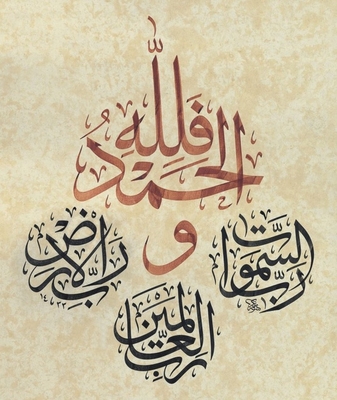 فَلِلَّهِ الْحَمْدُ
رَبِّ السَّمَوَاتِ
وَ
رَبِّ الْأَرْضِ
رَبِّ الْعَالَمِينَ
١٤٣٣